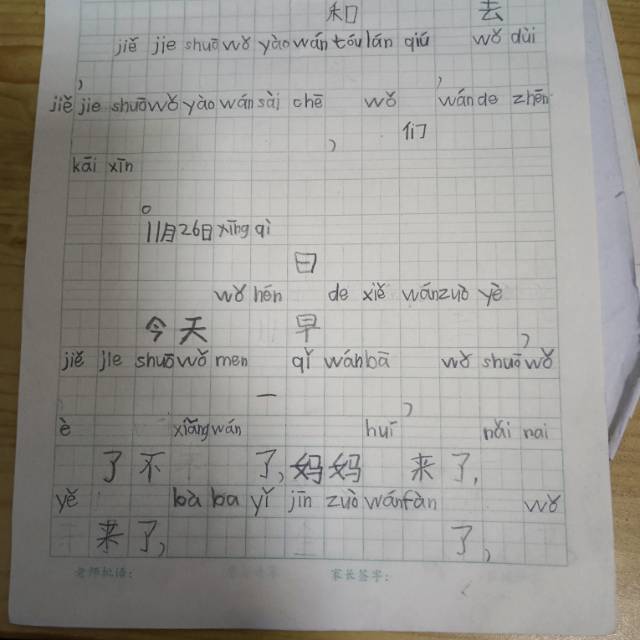 和 去
jiě jie shuō wǒ yào wán tóu lán qiú wǒ dùi
,
jiě jie shuō wǒ yào wán sài chē wǒ , wán de zhēn
, 们
kāi xīn
。
11月26日 xīng qì
日
wǒ hén de xiě wán zuò yè
今天 早
,
jiě jie shuō wǒ men qǐ wán bā wǒ shuō wǒ
一
,
è xiǎng wán huí nǎi nai
了不 了,妈妈 来了,
yě bà ba yǐ jīn zuò wán fàn wǒ
来了, 了,
老师批语: 家长签字: